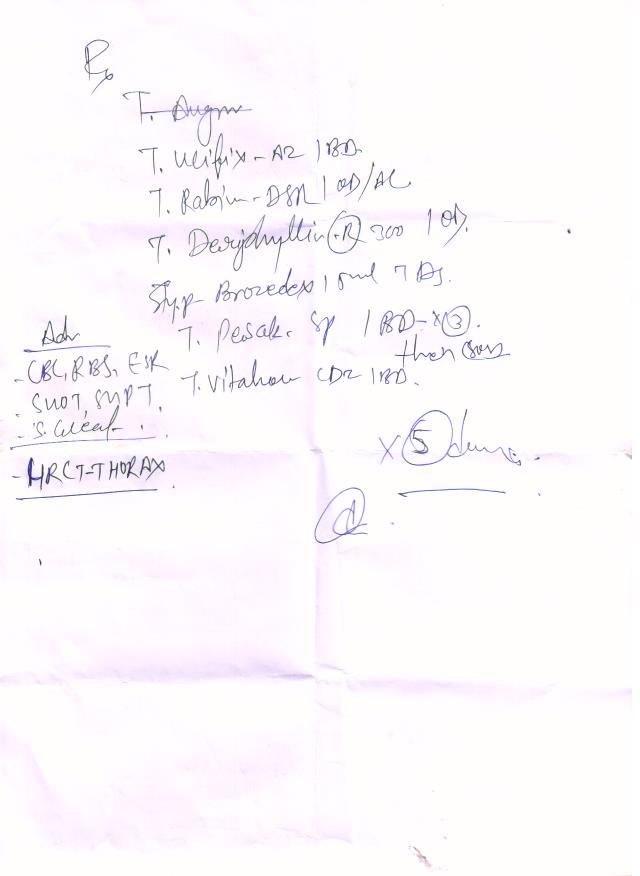 Rx
T. Augm
T. Ucifix-AZ 1 BD.
T. Rabium-DSR 1 OD/AC
T. Deriphyllin-R 300 1 OD.
Syp Brozedex
T. SP 1 BD-x3.
then SOS
T. CDZ 1 BD.
x 5 days.
Adv
- CBC, RBS, ESR
- SGOT, SGPT,
- S. Creat.
- HRCT-THORAX